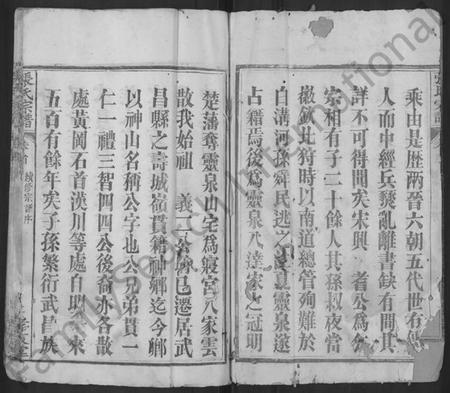 乘由是歷兩晉六朝五代世有
人而中經兵燹亂離書缺有間其
詳不可得聞矣宋興 者公為
宗相有子二十餘人其孫叔夜當
徽欽北狩時以南道總管殉難於
白溝河孫舜民逃之 靈泉遂
占籍焉後為靈泉八達家之冠明
楚藩奪靈泉山宅為寢宮八家雲
散我始祖 義二公 已遷居武
昌縣之壽城嶺貫籍神鄉迄今鄉
以神山名稱公字也公兄弟貫一
仁一禮三智四四公後裔亦各散
處黃岡石首漢川等處自明 來
五百有餘年矣子孫繁衍武昌族
張氏宗譜
首 續修宗譜序
FamilySearch International